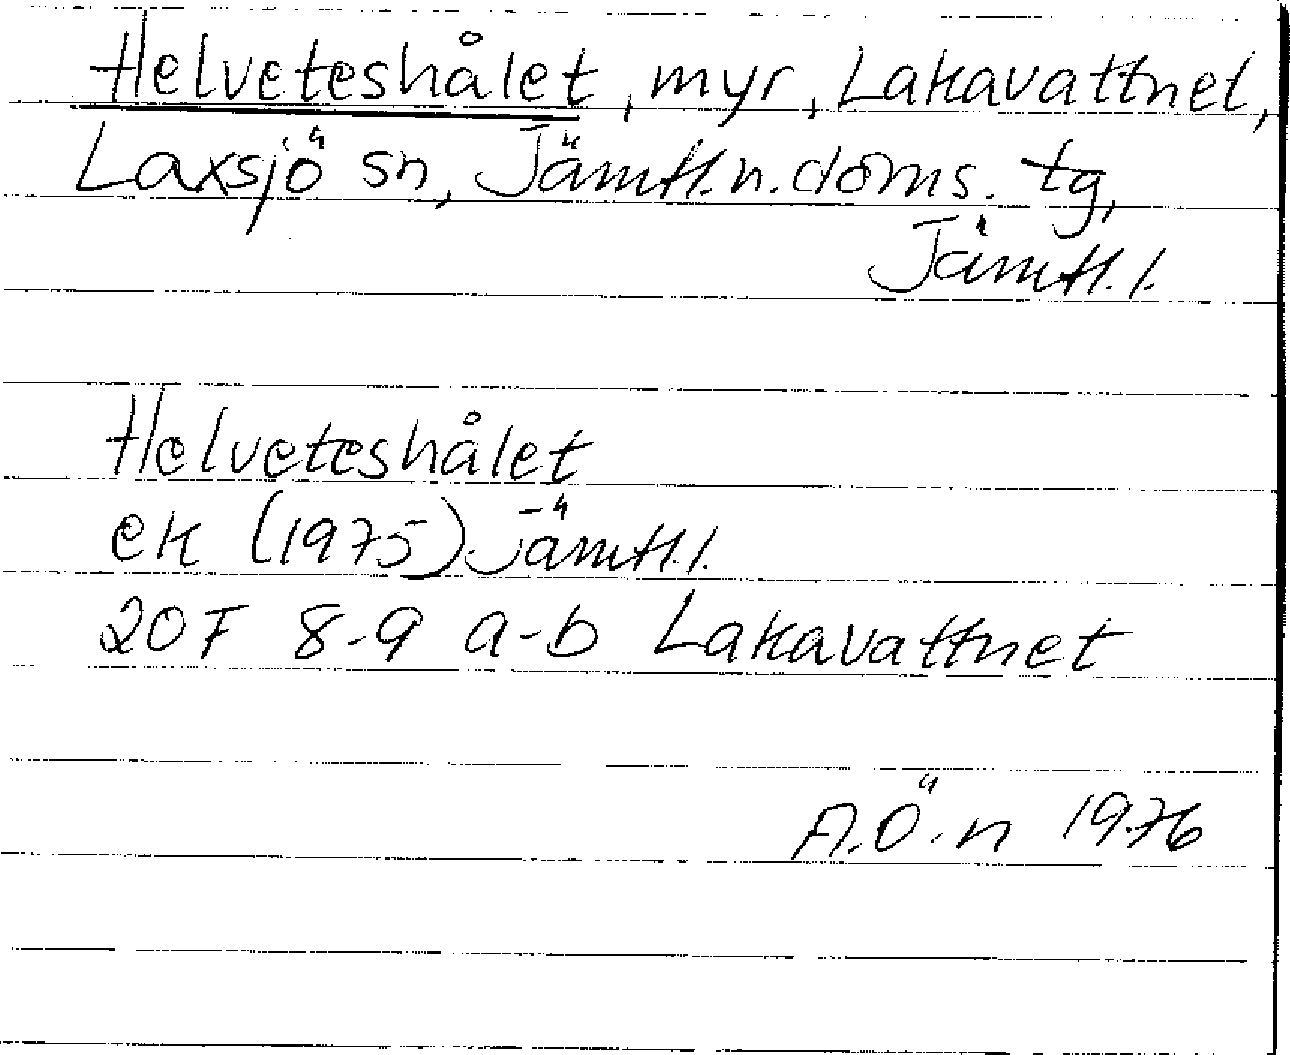 Helveteshålet, myr, Lakavattnet,
Laxsjö sn, Jämtl.n.doms. tg,
Jämtl.l.
Helveteshålet
ek (1975) Jämtl.l.
20F 8-9 a-b Lakavattnet
A.Ö.n 1976